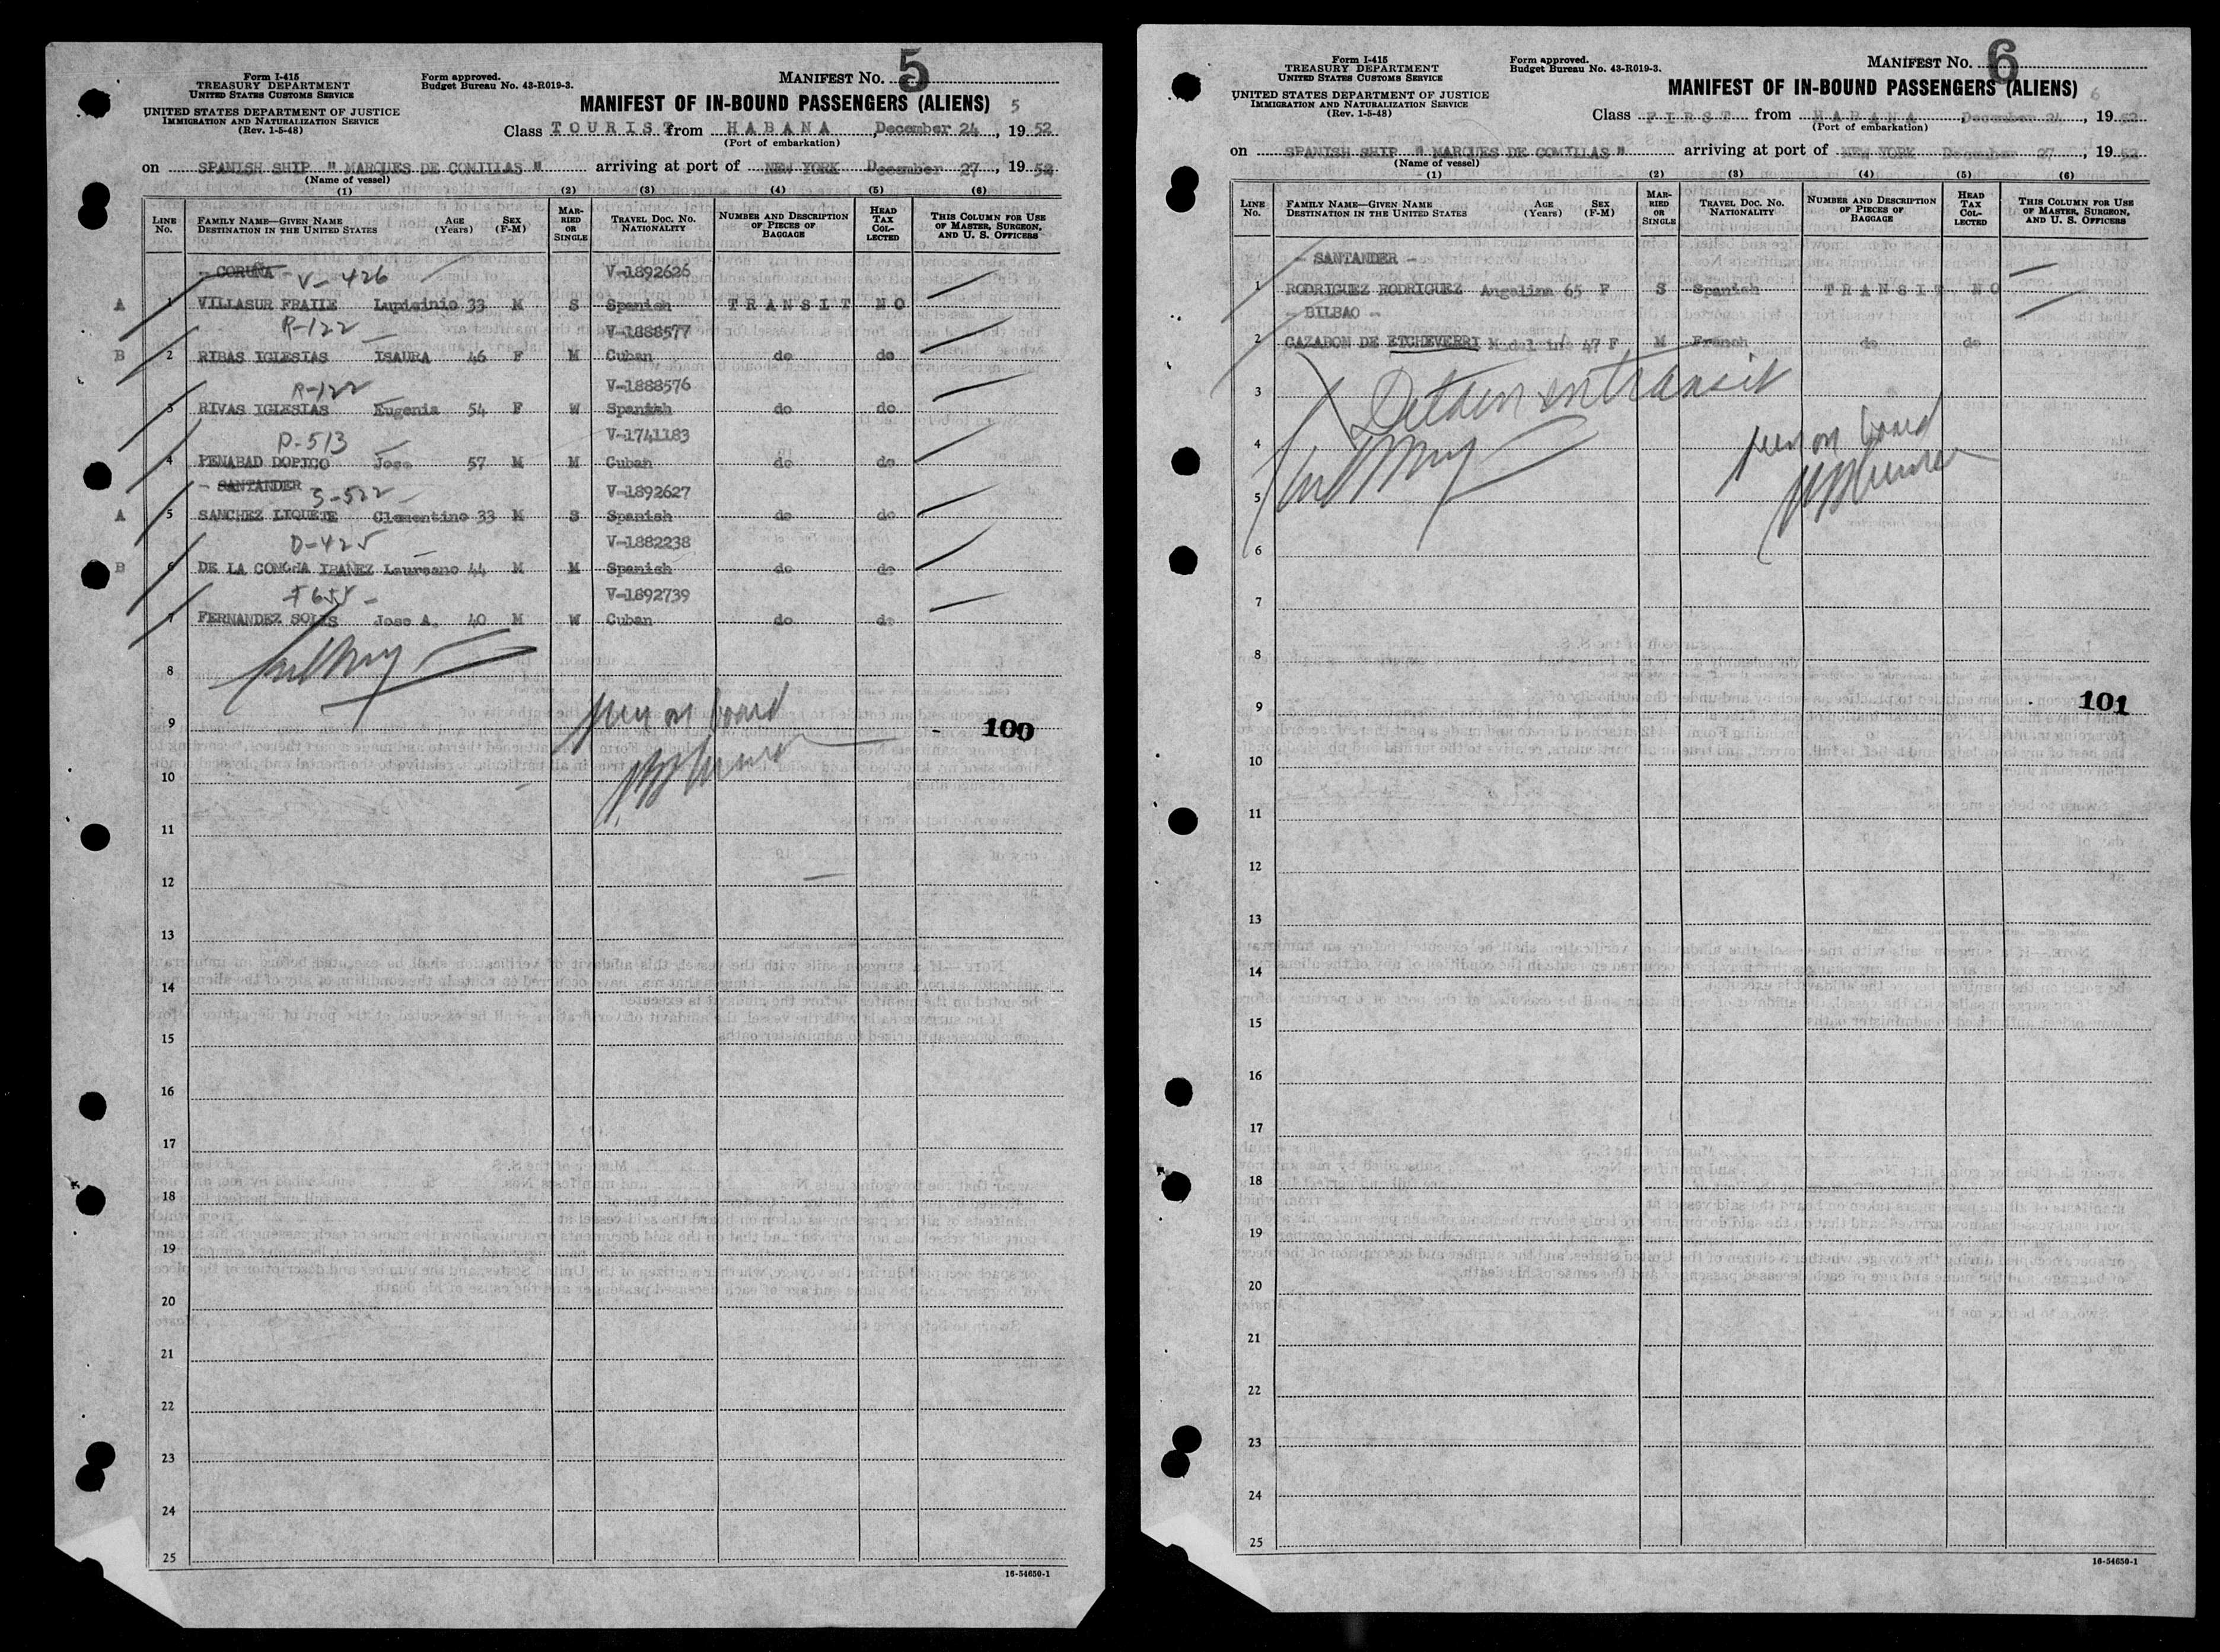 Form I-415
TREASURY DEPARTMENT
UNITED STATES CUSTOMS SERVICE
UNITED STATES DEPARTMENT OF JUSTICE
IMMIGRATION AND NATURALIZATION SERVICE
(Rev. 1-5-48)
Form approved.
Budget Bureau No. 43-R019-3.
MANIFEST No. 5
MANIFEST OF IN-BOUND PASSENGERS (ALIENS) 5
Class TOURIST from HABANA, December 24, 1952
(Port of embarkation)
on SPANISH SHIP "MARQUES DE COMILLAS" arriving at port of NEW YORK December 27, 1952
(Name of vessel)
(1) (2) (3) (4) (5) (6)
LINE No. FAMILY NAME—GIVEN NAME DESTINATION IN THE UNITED STATES AGE (Years) SEX (F-M) MARRIED OR SINGLE TRAVEL DOC. No. NATIONALITY NUMBER AND DESCRIPTION OF PIECES OF BAGGAGE HEAD TAX COLLECTED THIS COLUMN FOR USE OF MASTER, SURGEON, AND U. S. OFFICERS
- CORUÑA - V-426 V-1892626
A 1 VILLASUR FRAILE Lupisinio 33 M S Spanish TRANSIT NO
R-122 V-1888577
B 2 RIBAS IGLESIAS ISAURA 46 F M Cuban do do
R-122 V-1888576
3 RIVAS IGLESIAS Eugenia 54 F W Spanish do do
P-513 V-1741183
4 PENABAD DOPICO Jose 57 M M Cuban do do
- SANTANDER S-522 V-1892627
A 5 SANCHEZ LIQUETE Clementino 33 M S Spanish do do
D-425 V-1882238
B 6 DE LA CONCHA IBAÑEZ Laureano 44 M M Spanish do do
F655 V-1892739
7 FERNANDEZ SOLIS Jose A. 40 M W Cuban do do
8
seen on board
9
100
10
11
12
13
14
15
16
17
18
19
20
21
22
23
24
25
16-54650-1
Form I-415
TREASURY DEPARTMENT
UNITED STATES CUSTOMS SERVICE
UNITED STATES DEPARTMENT OF JUSTICE
IMMIGRATION AND NATURALIZATION SERVICE
(Rev. 1-5-48)
Form approved.
Budget Bureau No. 43-R019-3.
MANIFEST No. 6
MANIFEST OF IN-BOUND PASSENGERS (ALIENS) 6
Class FIRST from HABANA, December 24, 1952
(Port of embarkation)
on SPANISH SHIP "MARQUES DE COMILLAS" arriving at port of NEW YORK December 27, 1952
(Name of vessel)
(1) (2) (3) (4) (5) (6)
LINE No. FAMILY NAME—GIVEN NAME DESTINATION IN THE UNITED STATES AGE (Years) SEX (F-M) MARRIED OR SINGLE TRAVEL DOC. No. NATIONALITY NUMBER AND DESCRIPTION OF PIECES OF BAGGAGE HEAD TAX COLLECTED THIS COLUMN FOR USE OF MASTER, SURGEON, AND U. S. OFFICERS
- SANTANDER -
1 RODRIGUEZ RODRIGUEZ Angelina 65 F S Spanish TRANSIT NO
- BILBAO -
2 CAZABON DE ETCHEVERRI Madeleine 47 F M French do do
3 Detain in transit
4 seen on board
5
6
7
8
9 101
10
11
12
13
14
15
16
17
18
19
20
21
22
23
24
25
16-54650-1